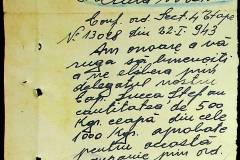 Conf. ord. Sect. 4 Etape
N. 13028 din 22.I.943
Am onoare a vă
ruga să binevoiți
a ne elibera prin
delegatul nostru
Cap. Lucca Ștefan
cantitatea de 500
Kgr. ceapă din cele
1000 Kgr. aprobate
pentru această
prin ord.